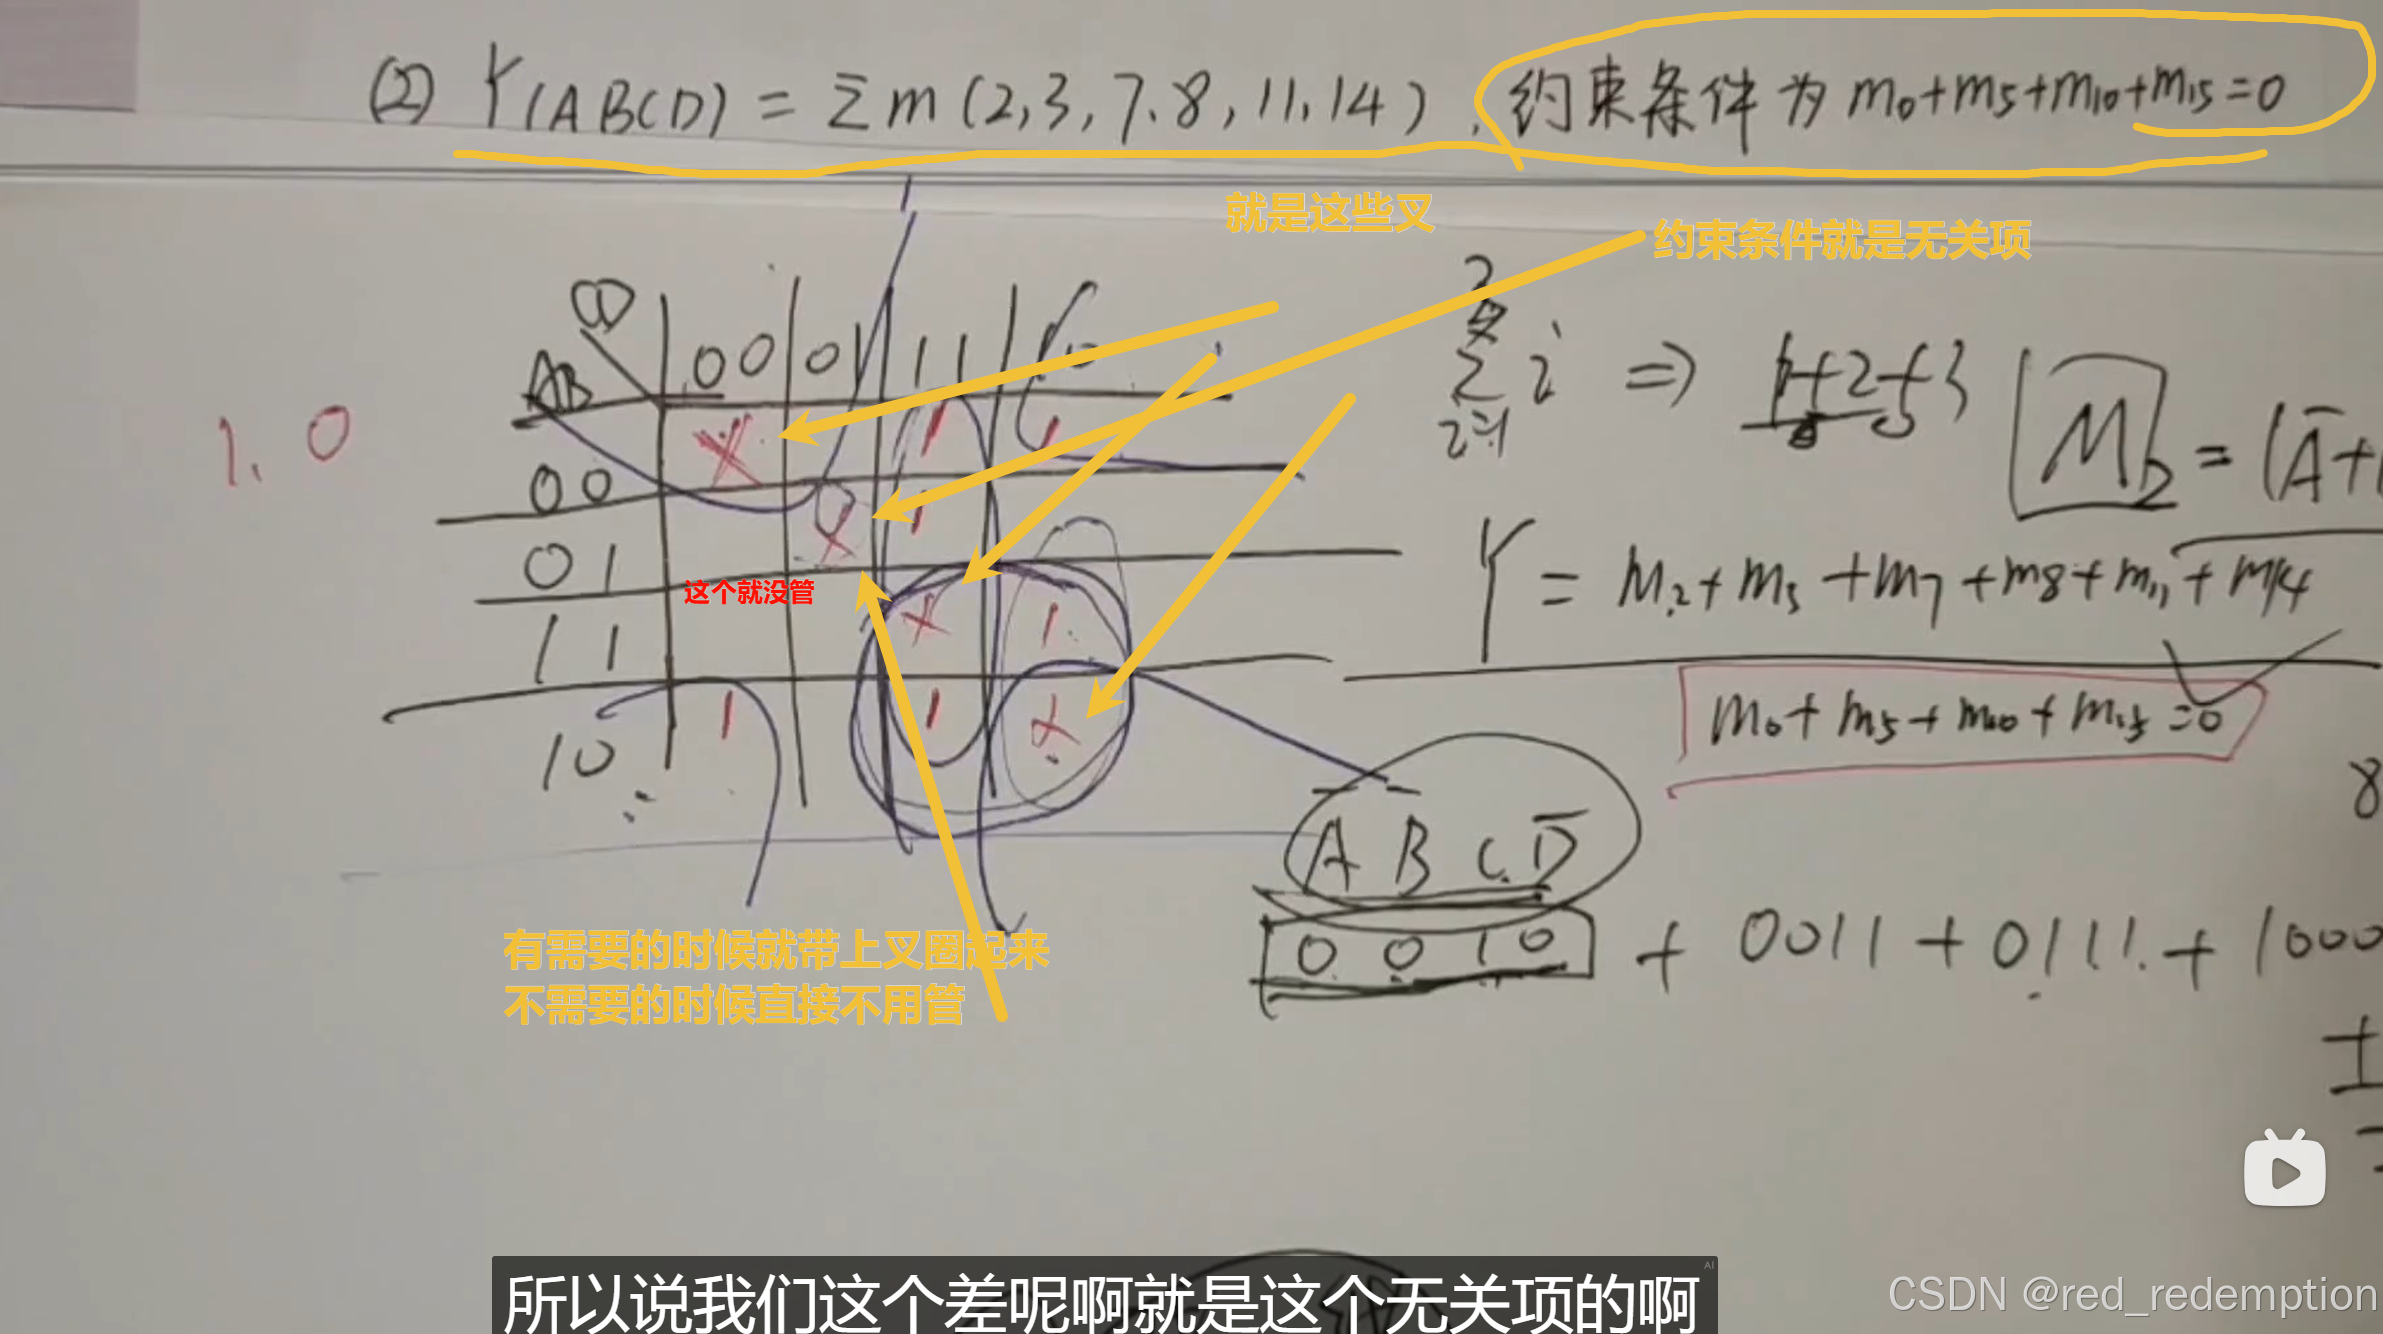 (2) Y(ABCD) = Σm(2,3,7.8,11,14), 约束条件为 m₀+m₅+m₁₀+m₁₅=0
就是这些叉
约束条件就是无关项
CD
AB
00 01 11 10
1. 0
X 1 1
00
X 1
01
这个就没管
X 1
11
1 1 X
10
Σ i ⇒ 1+2+3
i=1
M₂ = (A̅+
Y = m₂+m₃+m₇+m8+m₁₁+m14
m₀+m₅+m₁₀+m₁₅=0
8
A̅ B̅ C D̅
0 0 1 0 + 0011 + 0111 + 1000
+
有需要的时候就带上叉圈起来
不需要的时候直接不用管
所以说我们这个差呢啊就是这个无关项的啊
AI
CSDN @red_redemption